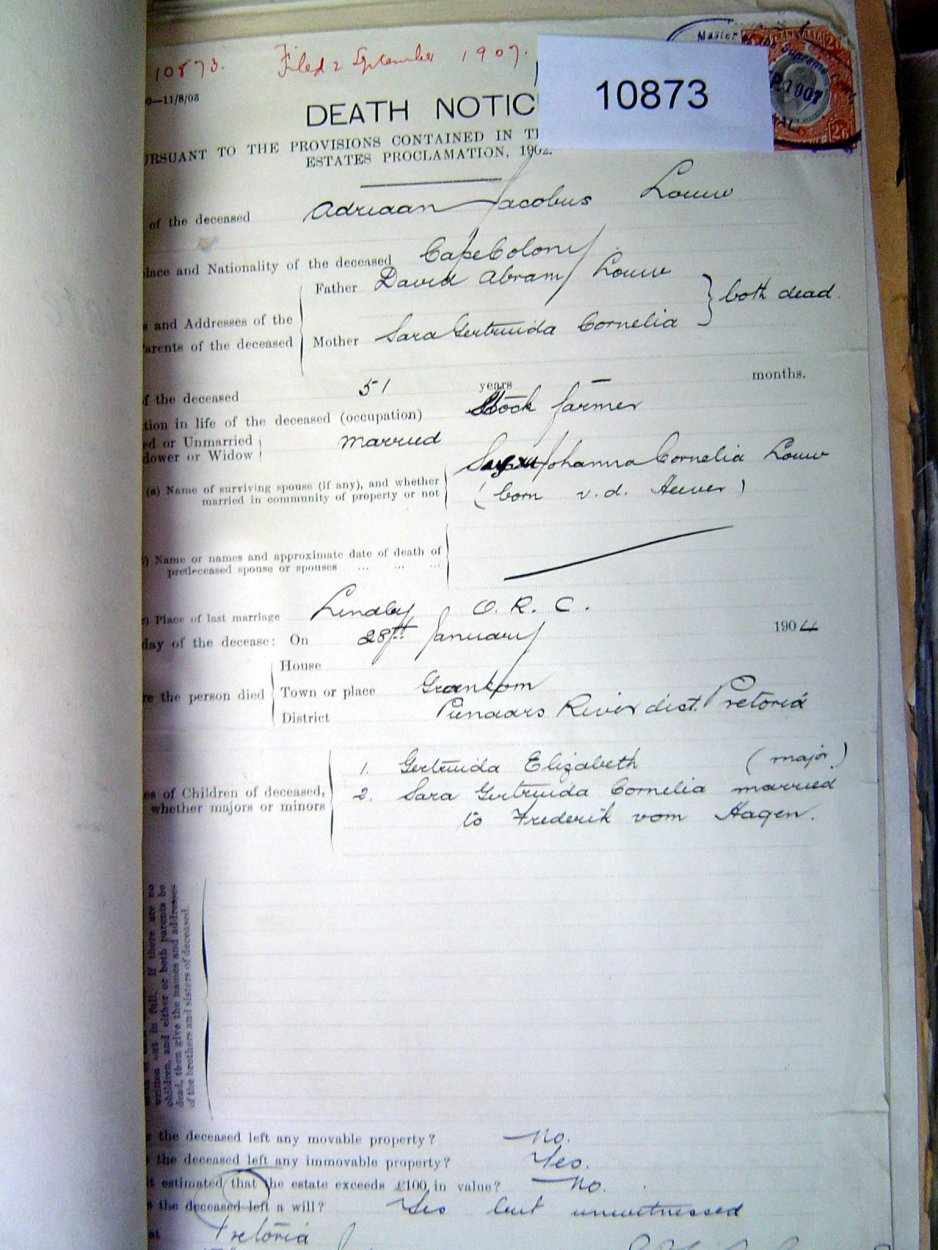 10873. Filed 2 September 1907.
10873
Master of the Supreme
1907
2/6
0—11/8/03
DEATH NOTIC
URSUANT TO THE PROVISIONS CONTAINED IN TH
ESTATES PROCLAMATION, 1902.
of the deceased Adriaan Jacobus Louw
lace and Nationality of the deceased Cape Colony
Father David Abram Louw
s and Addresses of the
both dead.
arents of the deceased
Mother Sara Gertruida Cornelia
f the deceased 51 years — months.
tion in life of the deceased (occupation) Stock farmer
ed or Unmarried married
dower or Widow
(a) Name of surviving spouse (if any), and whether Johanna Cornelia Louw
married in community of property or not (born v.d. Heever)
) Name or names and approximate date of death of
predeceased spouse or spouses ... ... ...
) Place of last marriage Lindley O. R. C.
day of the decease: On 28th January 190
House
re the person died Town or place
District Pienaars River dist. Pretoria
1. Gertruida Elizabeth (major)
es of Children of deceased, 2. Sara Gertruida Cornelia married
whether majors or minors
to Frederik vom Hagen.
written out in full. If there are no
children, and either or both parents be
dead, then give the names and addresses
of the brothers and sisters of deceased.
the deceased left any movable property? No.
the deceased left any immovable property? Yes.
t estimated that the estate exceeds £100 in value? No.
the deceased left a will? Yes but unwitnessed
at Pretoria